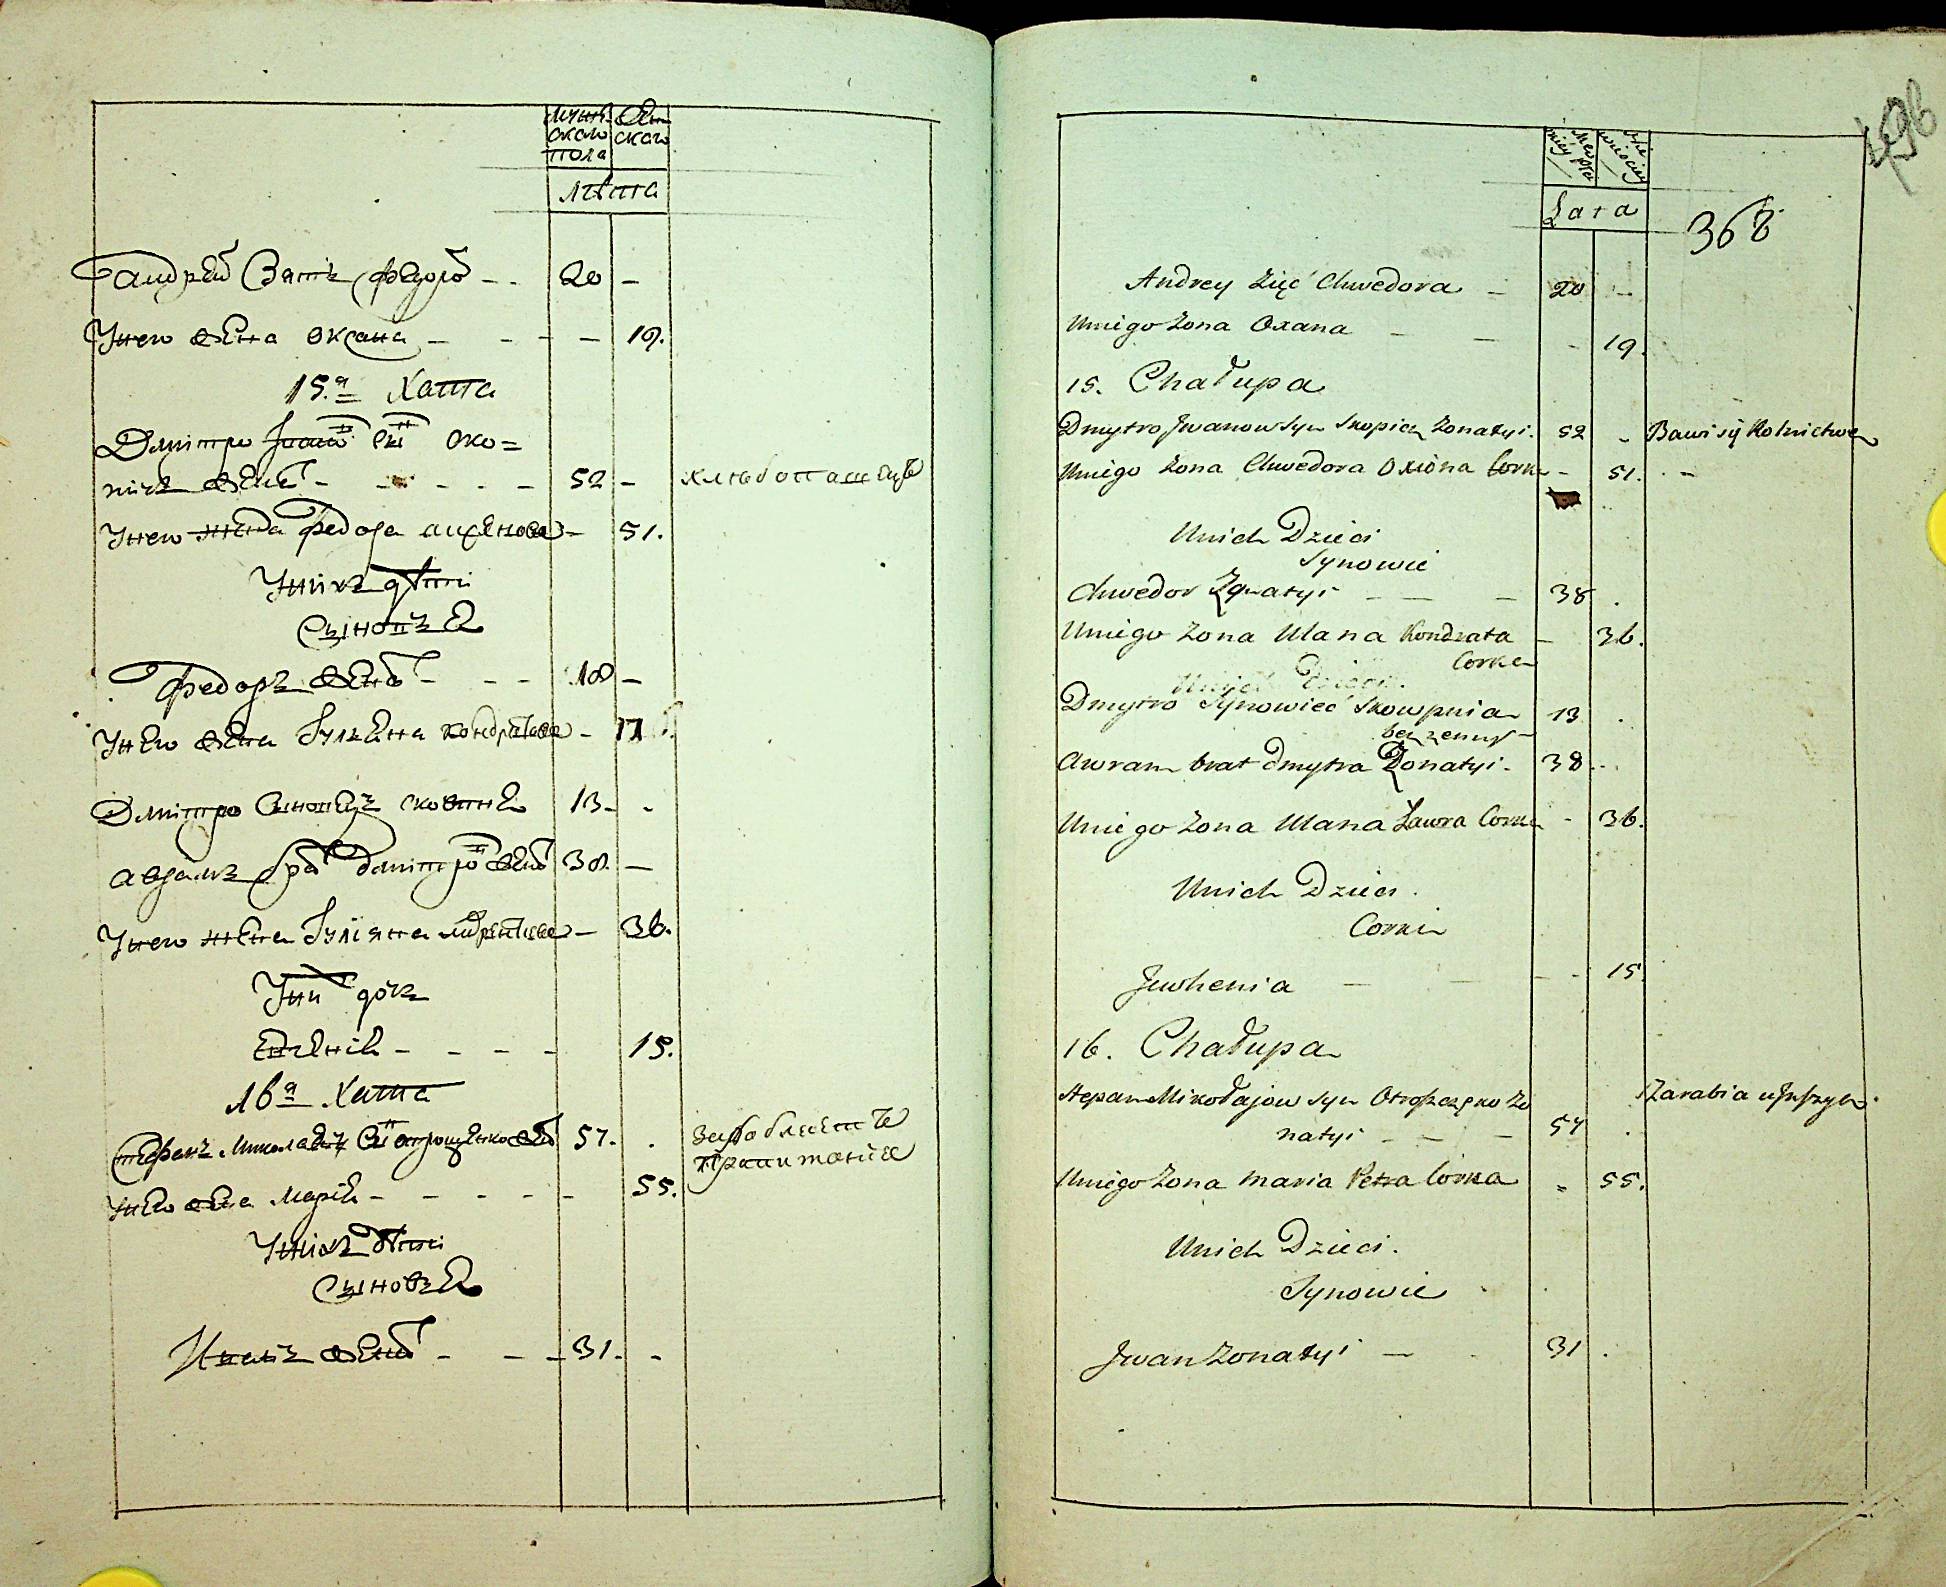 мужескаго пола
женскаго
лѣта
Андрей Зять Федора - - 20 -
У него жена Оксана - - - - 19.
15.я Хата
Дмитро Ивановъ Сы͠нъ Ско=
пичъ женатъ - - - - - 52 - хлѣбопашецъ
У него жена Федора аксенова - 51.
У нихъ дѣти
Сыновья
Федоръ женатъ - - - 18 -
У него жена Гульяна кондратова - 17
Дмитро Сыновецъ сковпня 13 - -
аврамъ братъ дмитровъ женатъ 38. -
У него жена Гулияна - 36.
У них дочь
Евгения - - - - 15.
16я Хата
Стефанъ Миколаевъ Сы͠нъ отрощенко женатъ 57. .
У него жена Мария - - - - - 55.
У нихъ дѣти
Сыновья
Иванъ женатъ - - - 31. -
498
Lata
368
Andrey Zięć Chwedora - 20 -
Uniego Zona Oxana - - - 19.
15. Chałupa
Dmytro Jwanow Syn Skopicz Zonatyi. 52 - Bawi się Rolnictwem
Uniego Zona Chwedora Oxiona Corka - 51. - -
Unich Dzieci
Synowie
Chwedor Zonatyi - - - 38 .
Uniego Zona Ulana Kondrata - 36.
Corka
Dmytro Synowiec Skowpnia 13 .
bezzenny
Awram brat dmytra Zonatyi - 38 - .
Uniego Zona Ulana Ławra Corka - 36.
Unich Dzieci.
Corki
Jewhenia - - - - 15.
16. Chałupa
Stepan Mikołajow Syn Otroszczenko Zo
natyi - - - 57 .
Zarabia
Uniego Zona Maria Petra Corka - 55.
Unich Dzieci.
Synowie
Jwan Zonatyi - - 31 .